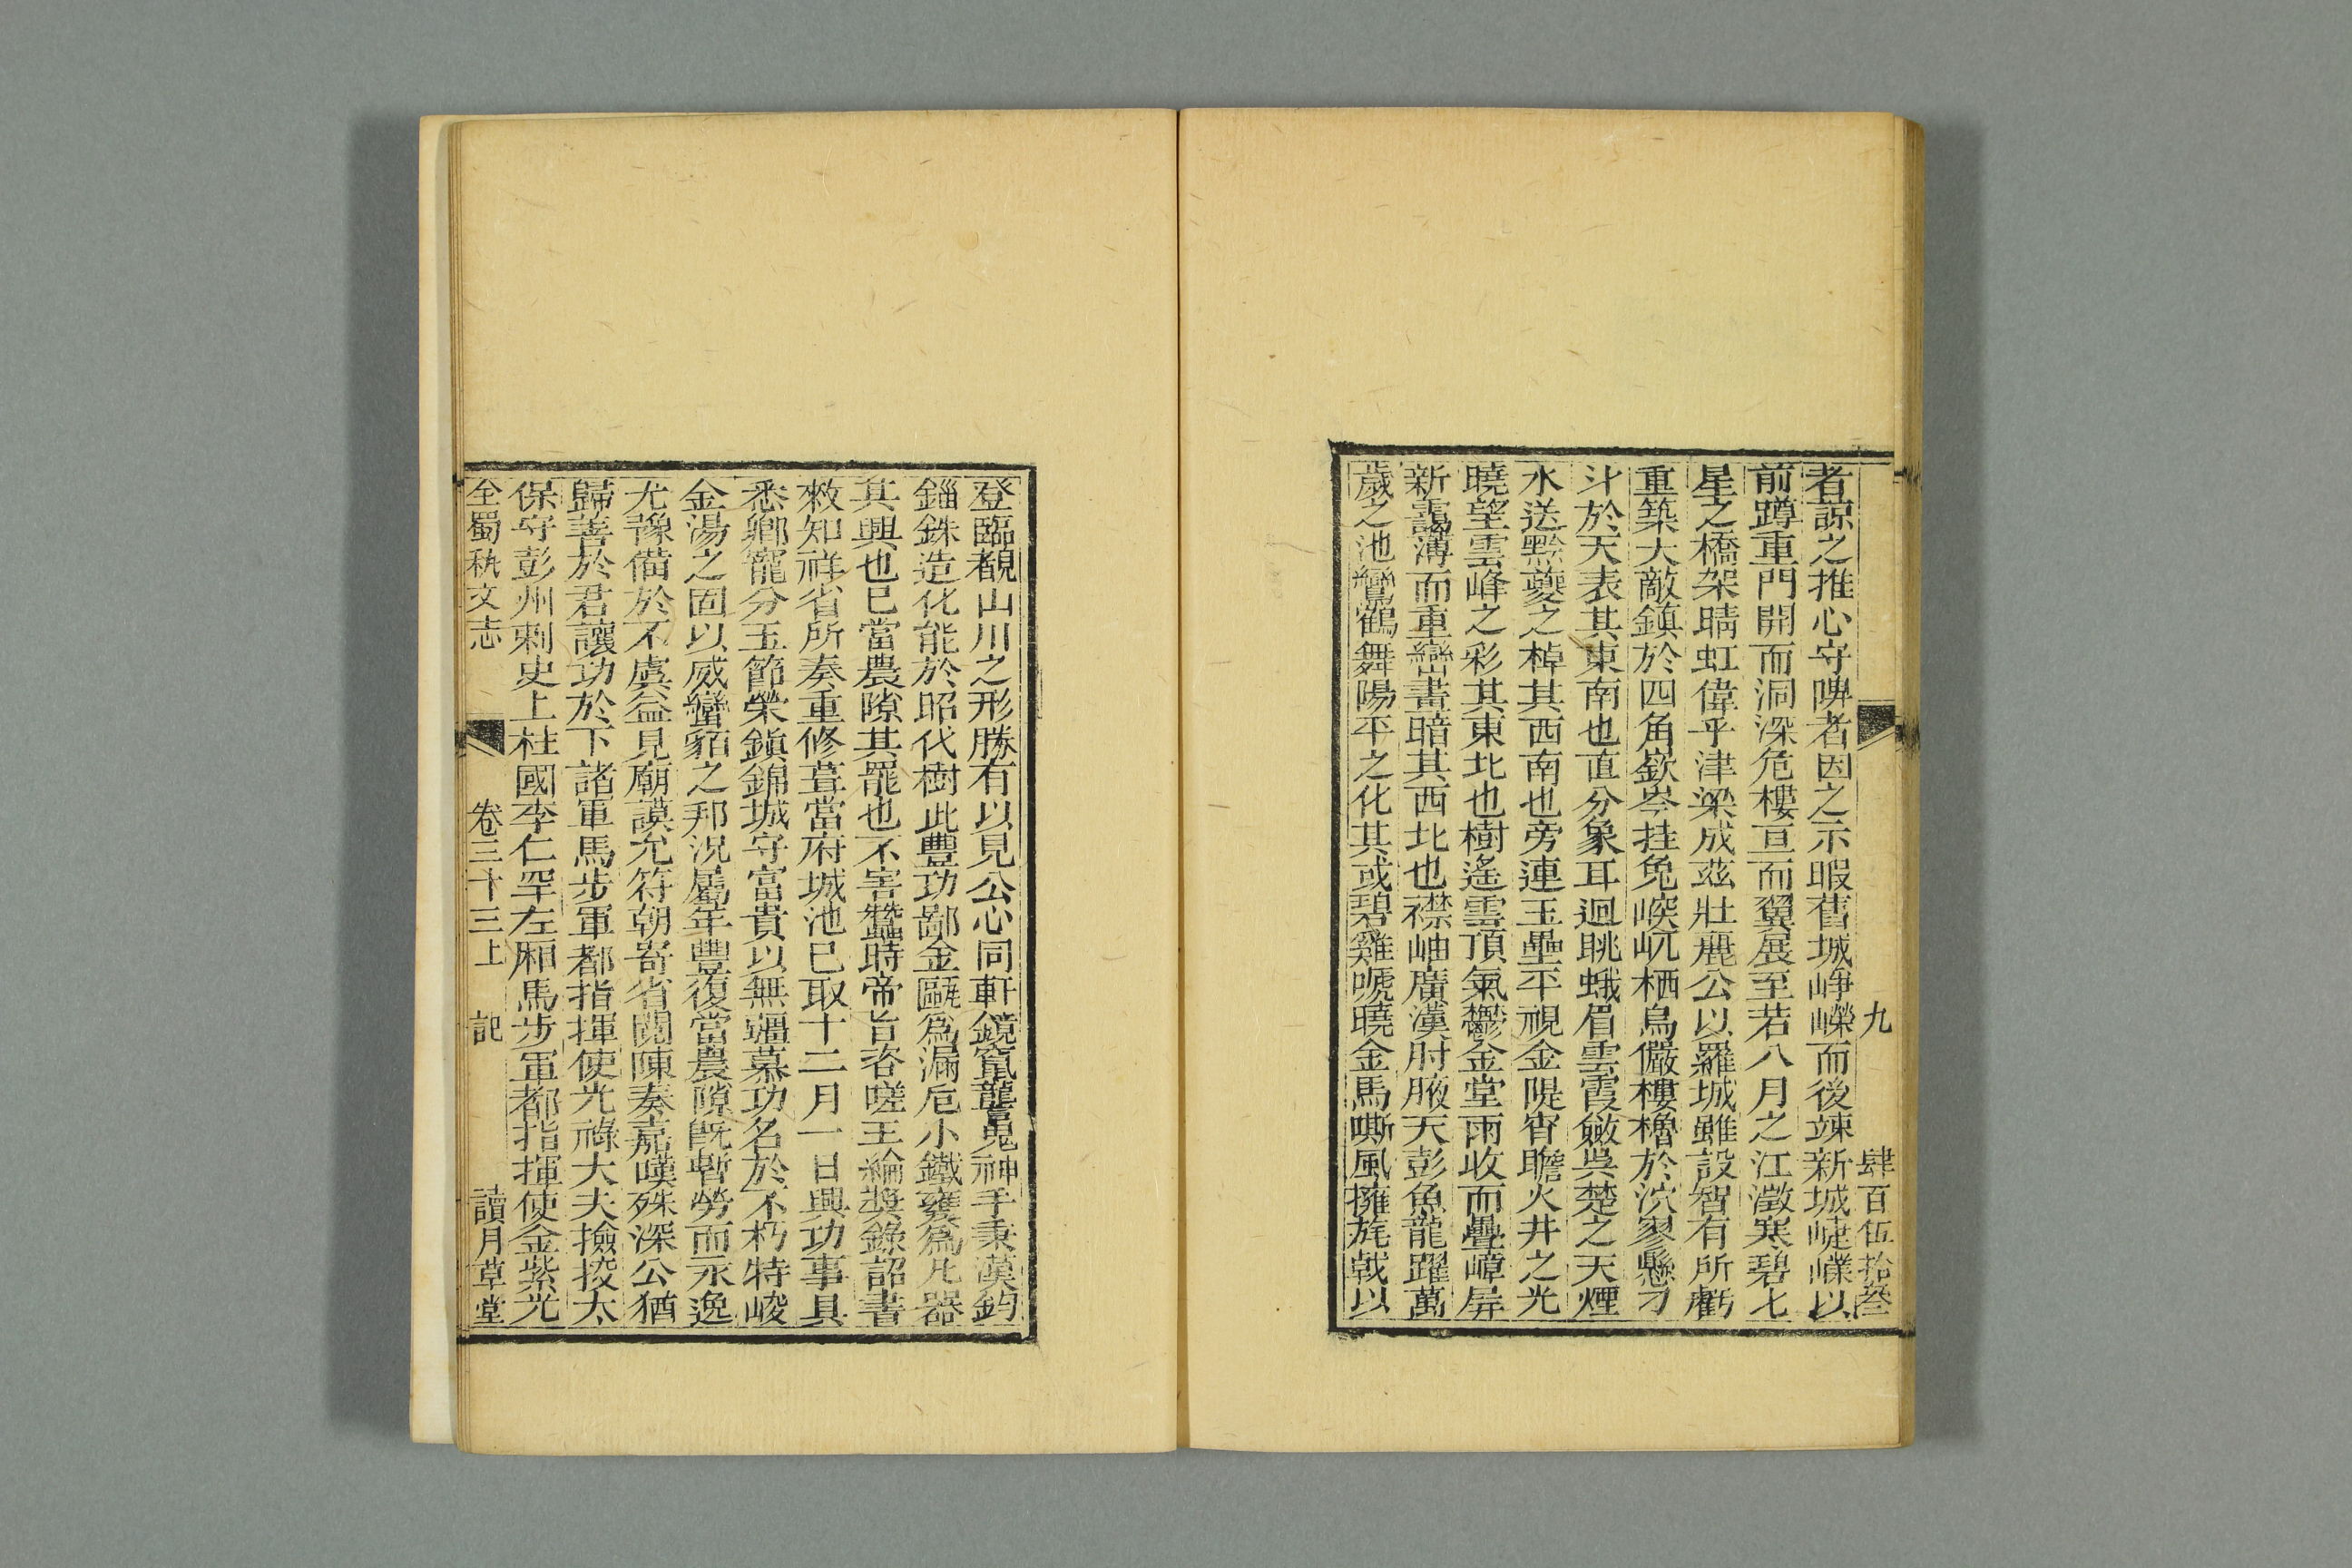 九　肆百伍拾叄
者諒之推心守陴者因之示暇舊城崢嶸而後竦新城崨嶫以
前蹲重門開而洞深危樓亘而翼展至若八月之江澂寒碧七
星之橋架晴虹偉乎津梁成茲壯麗公以羅城雖設智有所虧
重築大敵鎮於四角嶔岑挂兔㠋岏栖烏儼樓櫓於泬寥懸刁
斗於天表其東南也直分象耳迴眺蛾眉雲霞斂吳楚之天煙
水送黔夔之棹其西南也旁連玉壘平視金隄宵瞻火井之光
曉望雲峰之彩其東北也樹遙雲頂氣鬱金堂雨收而疊嶂屏
新靄薄而重巒畫暗其西北也襟岫廣漢肘腋天彭魚龍躍萬
歲之池鸞鶴舞陽平之化其或碧雞唬曉金馬嘶風擁旄戟以
登臨覩山川之形勝有以見公心同軒鏡竄龍鬼神手秉漢鈞
錙銖造化能於昭代樹此豐功鄙金甌爲漏卮小鐵甕爲凡器
其興也已當農隙其罷也不害蠶時帝旨咨嗟王綸奬錄詔書
敕知祥省所奏重修葺當府城池已取十二月一日興功事具
悉鄉寵分玉節榮鎮錦城守富貴以無疆慕功名於不朽特峻
金湯之固以威蠻貊之邦況屬年豐復當農隙旣暫勞而永逸
尤豫備於不虞益見廟謨允符朝寄省閱陳奏嘉嘆殊深公猶
歸善於君讓功於下諸軍馬步軍都指揮使光祿大夫撿挍太
保守彭州刺史上柱國李仁罕左廂馬步軍都指揮使金紫光
全蜀秇文志　卷三十三上　記　讀月草堂